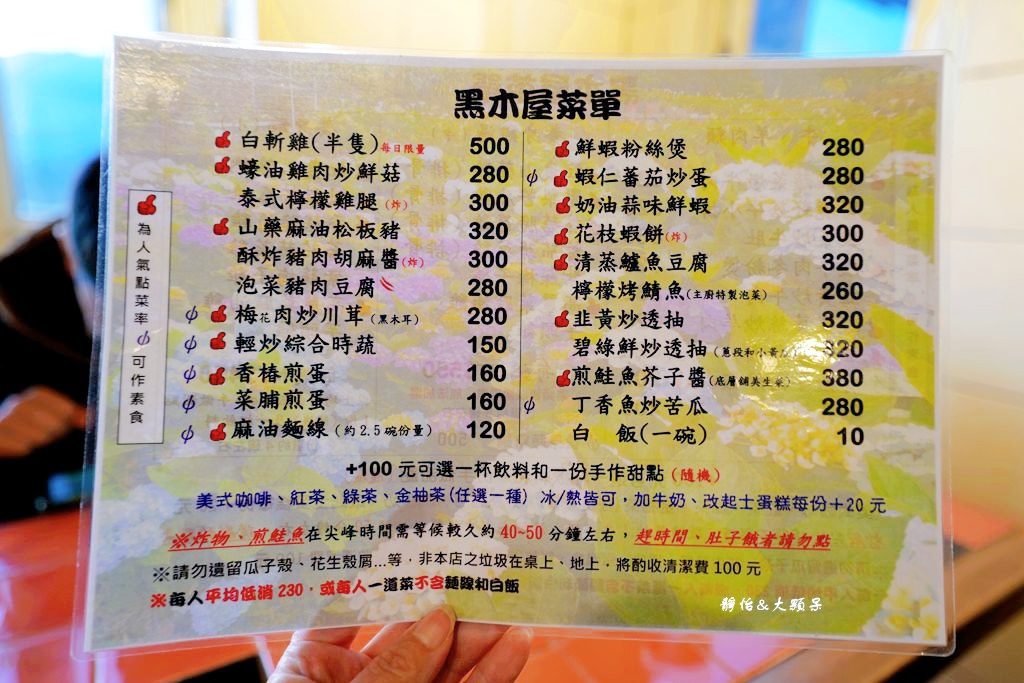 黑木屋菜單
為人氣點菜率 ∮可作素食
白斬雞(半隻)每日限量 500
蠔油雞肉炒鮮菇 280
泰式檸檬雞腿(炸) 300
山藥麻油松板豬 320
酥炸豬肉胡麻醬(炸) 300
泡菜豬肉豆腐 280
∮ 梅花肉炒川茸(黑木耳) 280
∮ 輕炒綜合時蔬 150
∮ 香椿煎蛋 160
∮ 菜脯煎蛋 160
∮ 麻油麵線(約2.5碗份量) 120
鮮蝦粉絲煲 280
∮ 蝦仁蕃茄炒蛋 280
奶油蒜味鮮蝦 320
花枝蝦餅(炸) 300
清蒸鱸魚豆腐 320
檸檬烤鯖魚(主廚特製泡菜) 260
韭黃炒透抽 320
碧綠鮮炒透抽(蔥段和小黃瓜) 320
煎鮭魚芥子醬(底層舖美生菜) 380
∮ 丁香魚炒苦瓜 280
白 飯(一碗) 10
+100 元可選一杯飲料和一份手作甜點(隨機)
美式咖啡、紅茶、綠茶、金柚茶(任選一種) 冰/熱皆可,加牛奶、改起士蛋糕每份+20 元
※炸物、煎鮭魚在尖峰時間需等候較久約 40~50 分鐘左右,趕時間、肚子餓者請勿點
※請勿遺留瓜子殼、花生殼屑...等,非本店之垃圾在桌上、地上,將酌收清潔費 100 元
※每人平均低消 230,或每人一道菜不含麵線和白飯
靜怡&大顆呆